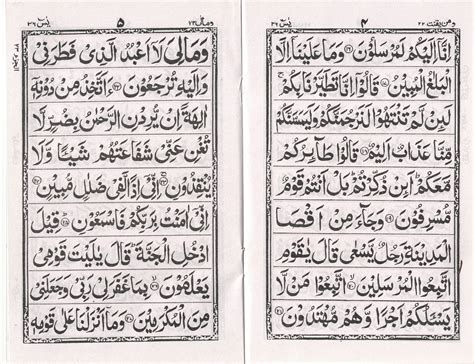 ومن يقنت ٢٢ ٤ يٰسٓ ٣٦
اِنَّاۤ اِلَيْكُمْ لَمُرْسَلُوْنَ ﴿١٦﴾ وَمَا عَلَيْنَاۤ اِلَّا
الْبَلٰغُ الْمُبِيْنُ ﴿١٧﴾ قَالُوْۤا اِنَّا تَطَيَّرْنَا بِكُمْ ۚ
لَئِنْ لَّمْ تَنْتَهُوْا لَنَرْجُمَنَّكُمْ وَلَيَمَسَّنَّكُمْ
مِّنَّا عَذَابٌ اَلِيْمٌ ﴿١٨﴾ قَالُوْا طَآئِرُكُمْ
مَّعَكُمْ ؕ اَئِنْ ذُكِّرْتُمْ ؕ بَلْ اَنْتُمْ قَوْمٌ
مُّسْرِفُوْنَ ﴿١٩﴾ وَجَآءَ مِنْ اَقْصَا
الْمَدِيْنَةِ رَجُلٌ يَّسْعٰى قَالَ يٰقَوْمِ
اتَّبِعُوا الْمُرْسَلِيْنَ ﴿٢٠﴾ اتَّبِعُوْا مَنْ لَّا
يَسْـَٔلُكُمْ اَجْرًا وَّهُمْ مُّهْتَدُوْنَ ﴿٢١﴾
ومالى ٢٣ ٥ يٰسٓ ٣٦
وَمَالِىَ لَاۤ اَعْبُدُ الَّذِىْ فَطَرَنِىْ
وَاِلَيْهِ تُرْجَعُوْنَ ﴿٢٢﴾ ءَاَتَّخِذُ مِنْ دُوْنِهٖۤ
اٰلِهَةً اِنْ يُّرِدْنِ الرَّحْمٰنُ بِضُرٍّ لَّا
تُغْنِ عَنِّىْ شَفَاعَتُهُمْ شَيْئًا وَّلَا
يُنْقِذُوْنِ ﴿٢٣﴾ اِنِّىْۤ اِذًا لَّفِىْ ضَلٰلٍ مُّبِيْنٍ ﴿٢٤﴾
اِنِّىْۤ اٰمَنْتُ بِرَبِّكُمْ فَاسْمَعُوْنِ ﴿٢٥﴾ قِيْلَ
ادْخُلِ الْجَنَّةَ ؕ قَالَ يٰلَيْتَ قَوْمِىْ
يَعْلَمُوْنَ ﴿٢٦﴾ بِمَا غَفَرَ لِىْ رَبِّىْ وَجَعَلَنِىْ
مِنَ الْمُكْرَمِيْنَ ﴿٢٧﴾ وَمَاۤ اَنْزَلْنَا عَلٰى قَوْمِهٖ